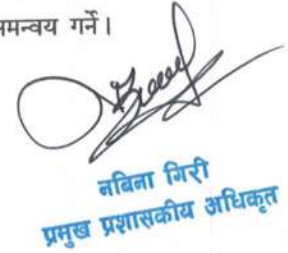 समन्वय गर्ने।
नबिना गिरी
प्रमुख प्रशासकीय अधिकृत